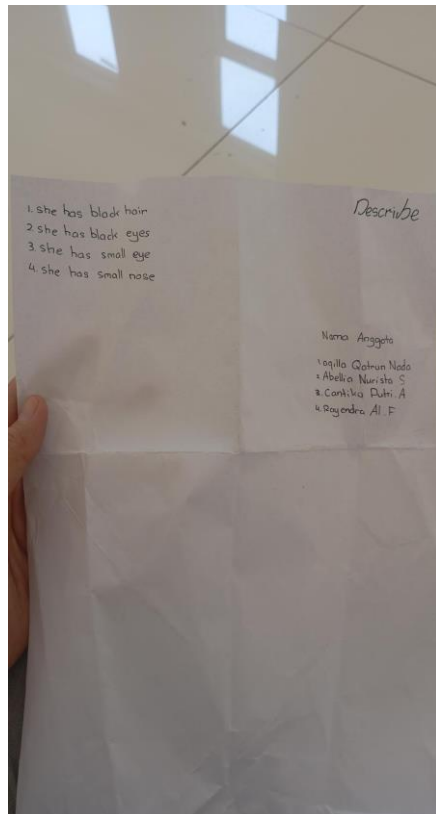 Descriube
1. she has black hair
2. she has black eyes
3. she has small eye
4. she has small nose
Nama Anggota
1. aqilla Qatrun Nada
2. Abellia Nurista S
3. Cantika Putri. A
4. Rayendra Al. F